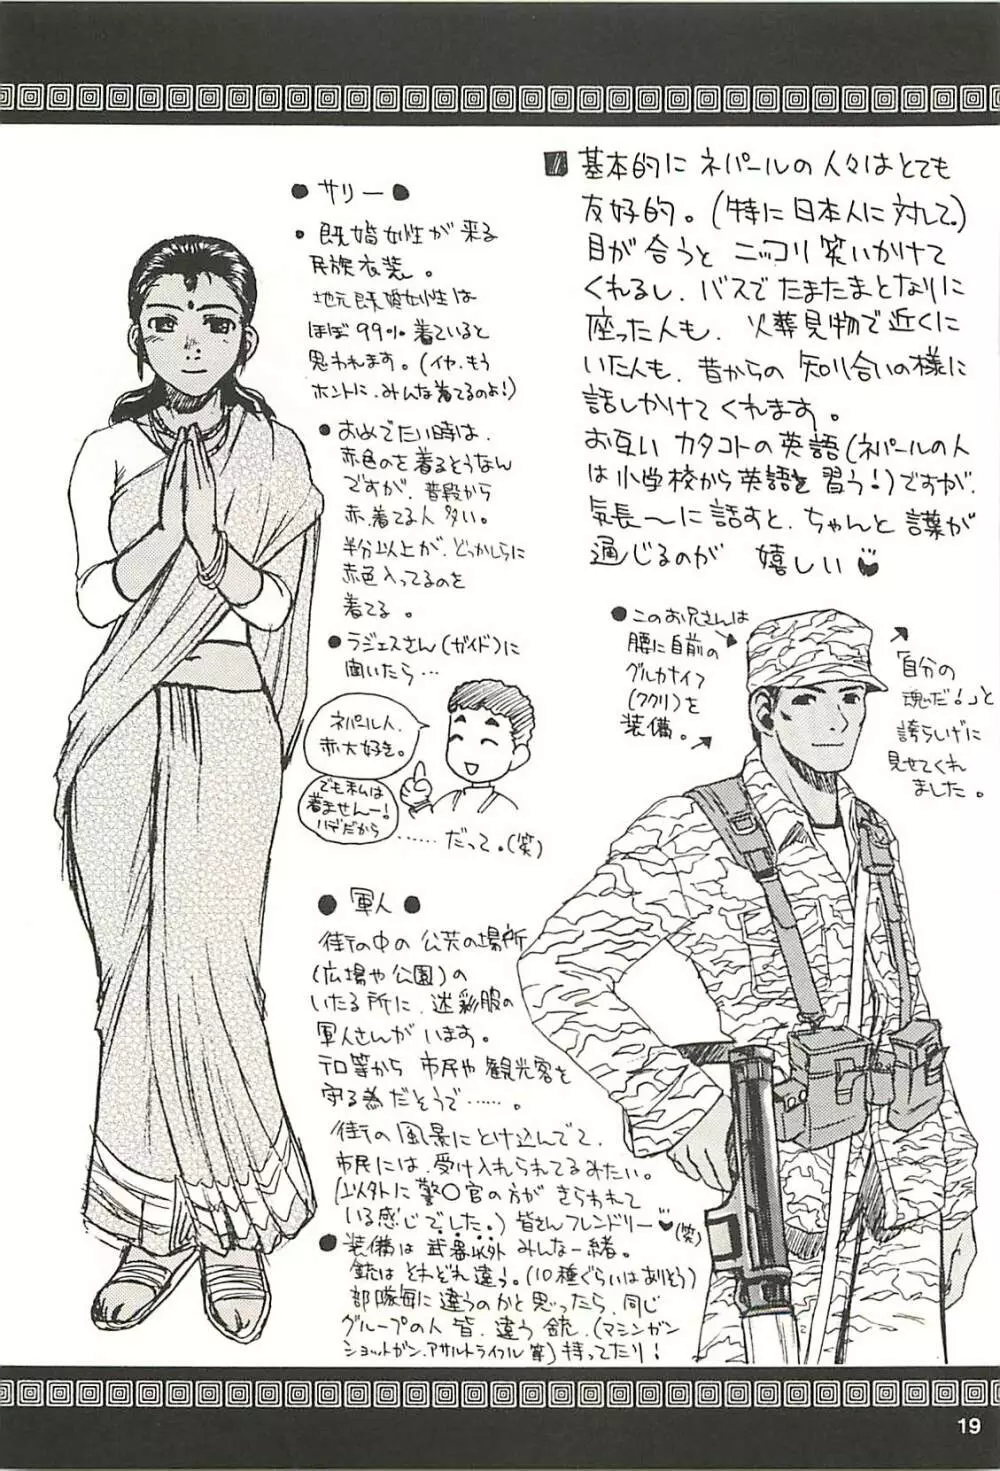 ■ 基本的に ネパールの 人々は とても
友好的。(特に 日本人に 対して)
目が 合うと ニッコリ 笑いかけて
くれるし、バスで たまたま となりに
座った人も、火葬見物で 近くに
いた人も、昔からの 知り合いの様に
話しかけて くれます。
お互い カタコトの英語(ネパールの人
は小学校から英語を 習う!)ですが、
気長〜に 話すと、ちゃんと 言葉が
通じるのが 嬉しい
●サリー●
・既婚女性が 来る
民族衣装。
地元既婚女性は
ほぼ99% 着ていると
思われます。(イヤ、もう
ホントに、みんな着てるのよ!)
●おめでたい時は、
赤色のを着るそうなん
ですが、普段から
赤、着てる人 多い。
半分以上が、どっかしらに
赤色入ってるのを
着てる。
●ラジェスさん(ガイド)に
聞いたら…
ネパール人、
赤大好き。
でも私は
着ませんー!
ハデだから
……だって。(笑)
●このお兄さんは
腰に自前の
グルカナイフ
(ククリ)を
装備。
「自分の
魂だ!」と
誇らしげに
見せてくれ
ました。
●軍人●
街の中の 公共の場所
(広場や公園)の
いたる所に、迷彩服の
軍人さんが います。
テロ等から 市民や 観光客を
守る為だそうで……。
街の 風景に とけ込んでて、
市民には、受け入れられてるみたい。
(以外に 警○官の方が きらわれて
いる感じでした。)皆さんフレンドリー(笑)
●装備は 武器以外 みんな一緒。
銃は それぞれ違う。(10種ぐらいはありそう)
部隊毎に違うのかと思ったら、同じ
グループの人 皆、違う 銃、(マシンガン
ショットガン、アサルトライフル 等)持ってたり!
19